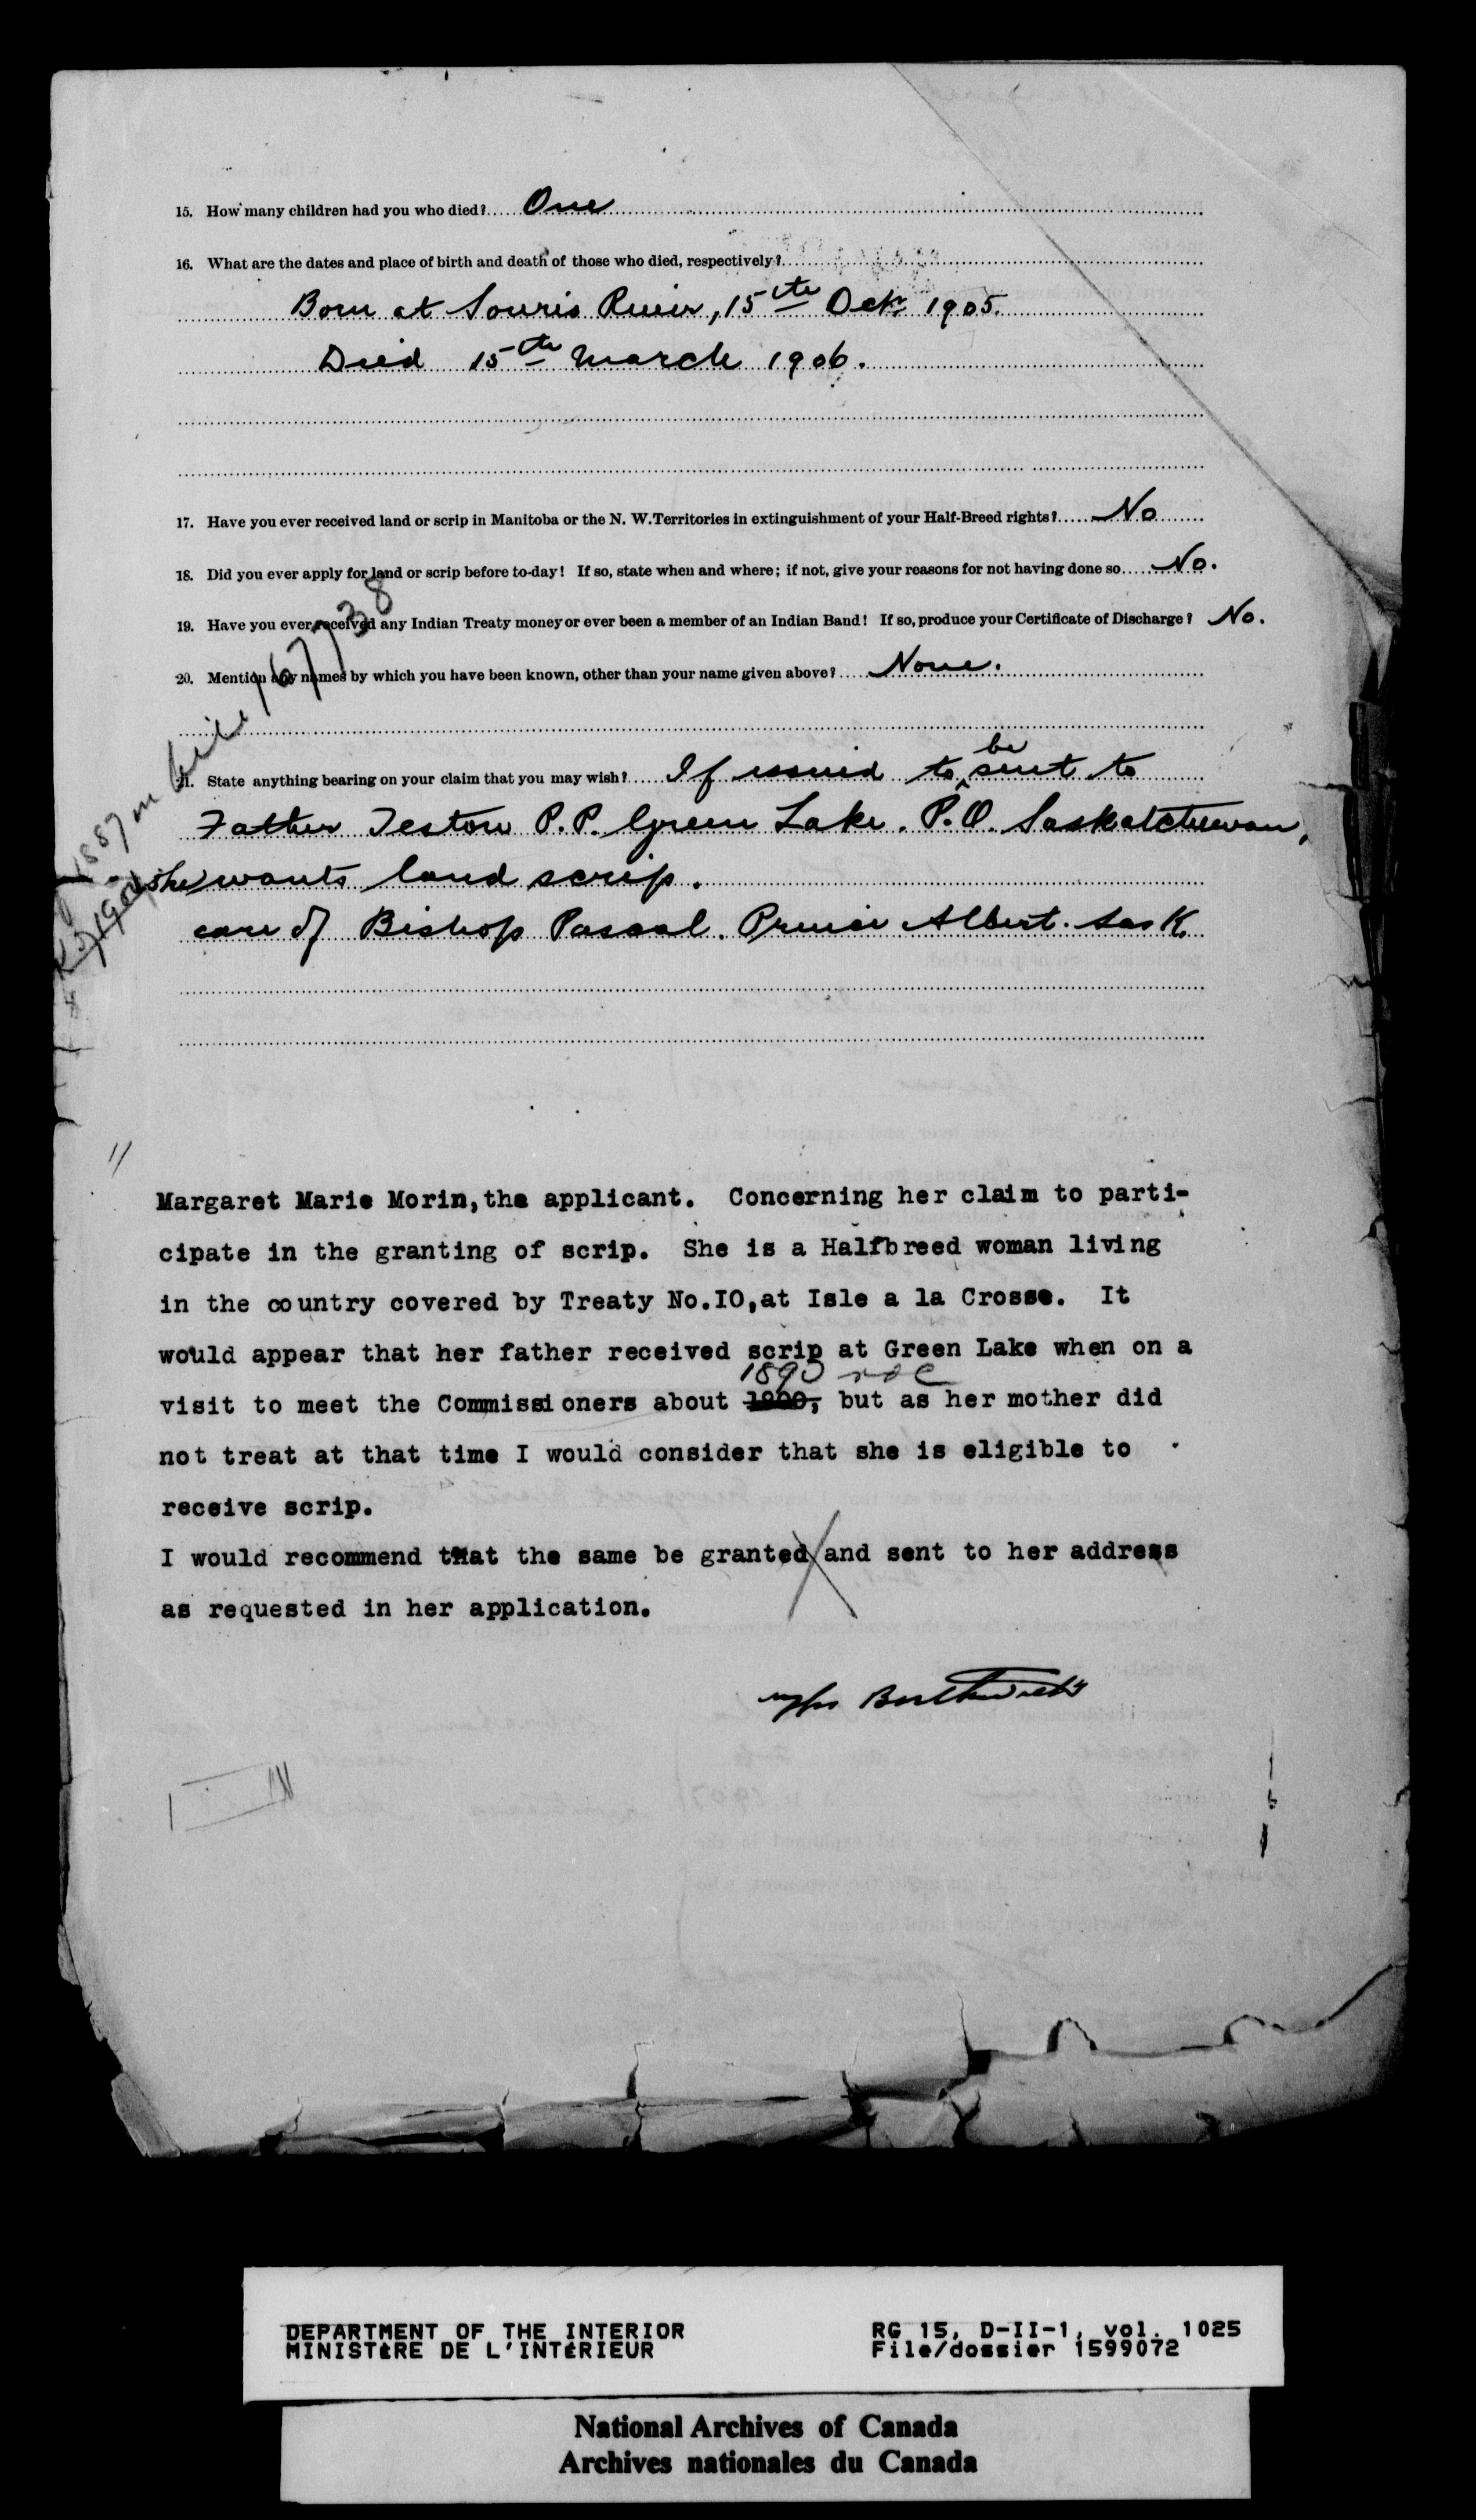 15. How many children had you who died? One
16. What are the dates and place of birth and death of those who died, respectively?
Born at Souris River, 15th Oct 1905.
Died 15th March 1906.
17. Have you ever received land or scrip in Manitoba or the N. W. Territories in extinguishment of your Half-Breed rights? No
18. Did you ever apply for land or scrip before to-day! If so, state when and where; if not, give your reasons for not having done so No.
19. Have you ever received any Indian Treaty money or ever been a member of an Indian Band! If so, produce your Certificate of Discharge? No.
20. Mention any names by which you have been known, other than your name given above? None.
21. State anything bearing on your claim that you may wish? If issued to be sent to
Father Teston P.P. Green Lake. P.O. Saskatchewan,
she wants land scrip.
care of Bishop Pascal. Prince Albert. Sask.
1887 in file 167138
Margaret Marie Morin,the applicant. Concerning her claim to parti-
cipate in the granting of scrip. She is a Halfbreed woman living
in the country covered by Treaty No.IO,at Isle a la Crosse. It
would appear that her father received scrip at Green Lake when on a
1890
visit to meet the Commissioners about 1900, but as her mother did
not treat at that time I would consider that she is eligible to
receive scrip.
I would recommend that the same be granted and sent to her address
as requested in her application.
DEPARTMENT OF THE INTERIOR RG 15, D-II-1, vol. 1025
MINISTÈRE DE L'INTÉRIEUR File/dossier 1599072
National Archives of Canada
Archives nationales du Canada